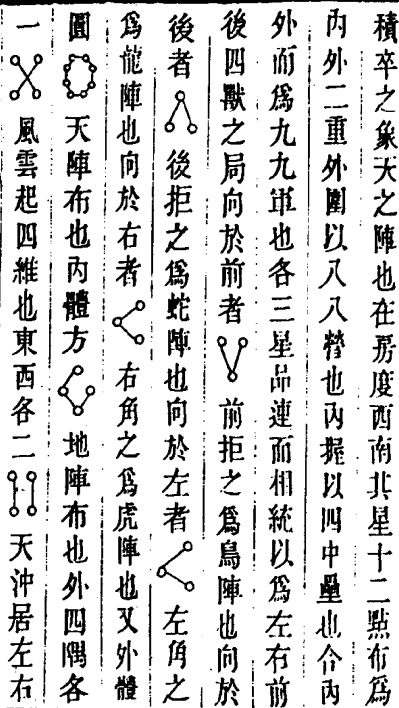 積卒之象天之陣也在房度西南其星十二點布爲
內外二重外圍以八八營也內握以四中壘也合內
外而爲九九軍也各三星品連而相統以爲左右前
後四獸之局向於前者 前拒之爲鳥陣也向於
後者 後拒之爲蛇陣也向於左者 左角之
爲龍陣也向於右者 右角之爲虎陣也又外體
圓 天陣布也內體方 地陣布也外四隅各
一 風雲起四維也東西各二 天沖居左右